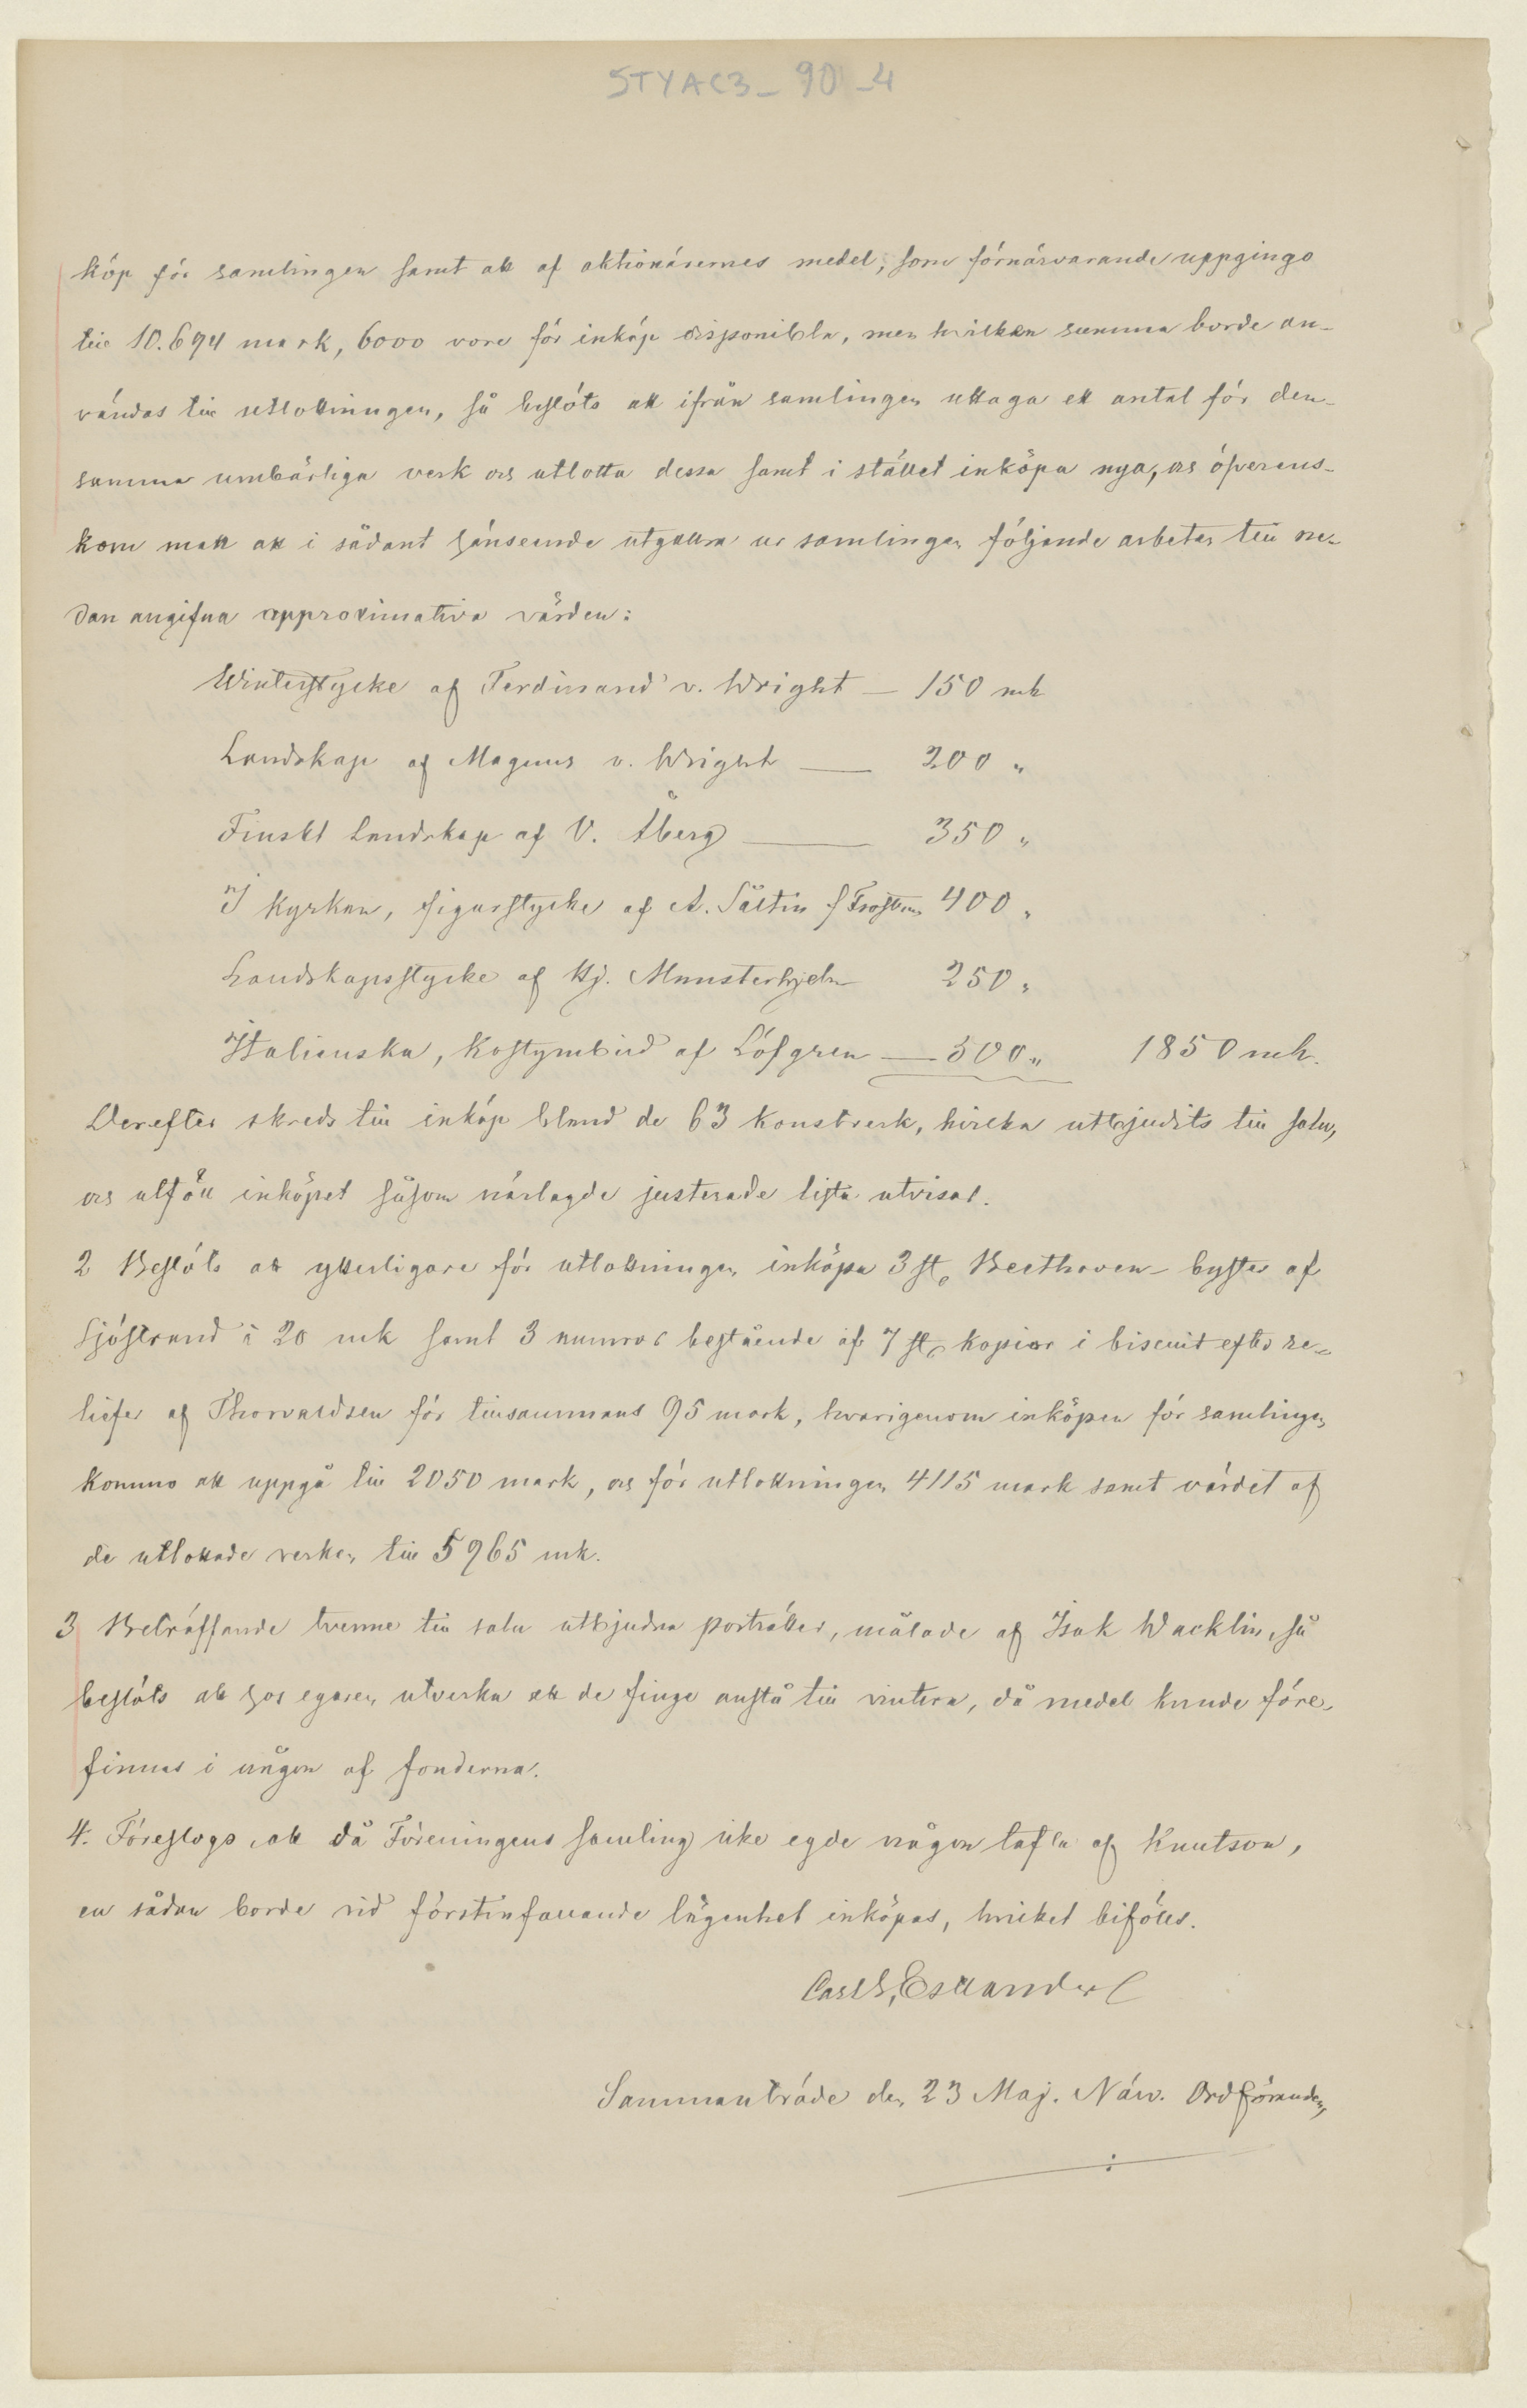 STYAC3_90_4
köp för samlingen samt att af aktionärernes medel, som förnärvarande uppgingo
till 10.694 mark, 6000 vore för inköp disponibla, men hvilken summa borde an-
vändas till utlottningen, så beslöts att ifrån samlingen uttaga ett antal för den-
samma umbärliga verk och utlotta dessa samt i stället inköpa nya, och öfverens-
kom man att i sådant hänseende utgallra ur samlingen följande arbeten till ne-
dan angifna approximativa värden:
Winterstycke af Ferdinand v. Wright — 150 mk
Landskap af Magnus v. Wright — 200 "
Finskt Landskap af V. Åberg — 350 "
I kyrkan, figurstycke af A. Såltin f Frosterus 400 "
Landskapsstycke af Hj. Munsterhjelm 250 "
Italienska, Kostymbild af Löfgren — 500 " 1850 mk.
Derefter skreds till inköp bland de 63 konstverk, hvilka utbjudits till salu,
och utföll inköpet såsom närlagde justerade lista utvisar.
2 Beslöts att ytterligare för utlottningen inköpa 3 st. Beethoven-byster af
Sjöstrand à 20 mk samt 3 numror bestående af 7 st. kopior i biscuit efter re-
liefer af Thorvaldsen för tillsammans 95 mark, hvarigenom inköpen för samlingen
kommo att uppgå till 2050 mark, och för utlottningen 4115 mark samt värdet af
de utlottade verken till 5965 mk.
3 Beträffande tvenne till salu utbjudna porträtter, målade af Isak Wacklin, så
beslöts att hos egaren utverka att de finge anstå till vintern, då medel kunde före-
finnas i någon af fonderna.
4. Föreslogs, att då Föreningens samling icke egde någon tafla af Knutson,
en sådan borde vid förstinfallande lägenhet inköpas, hvilket bifölls.
Carl G. Estlander
Sammanträde den 23 Maj. Närv. Ordföranden,